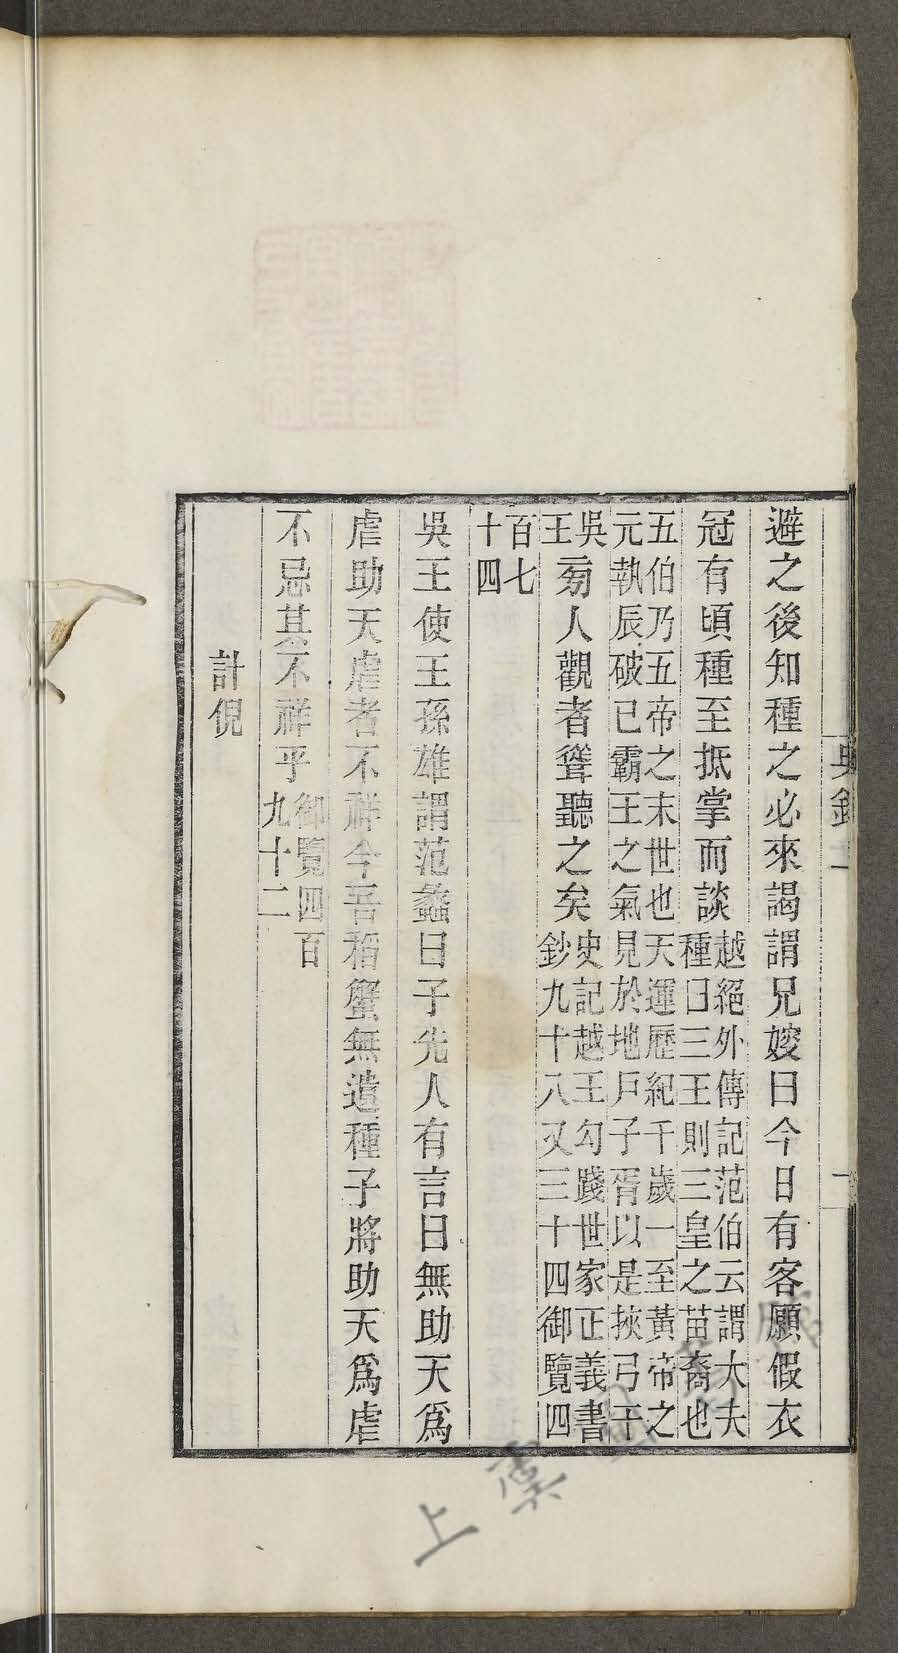 避之後知種之必來謁謂兄嫂曰今日有客願假衣
冠有頃種至抵掌而談越絕外傳記范伯云謂大夫
種曰三王則三皇之苗裔也
五伯乃五帝之末世也天運歷紀千歲一至黃帝之
元執辰破巳霸王之氣見於地戶子胥以是挾弓干
吳
王旁人觀者聳聽之矣史記越王勾踐世家正義書
鈔九十八又三十四御覽四
百七
十四
吳王使王孫雄謂范蠡曰子先人有言曰無助天爲
虐助天虐者不祥今吾稻蟹無遺種子將助天爲虐
不忌其不祥乎御覽四百
九十二
計倪
上虞